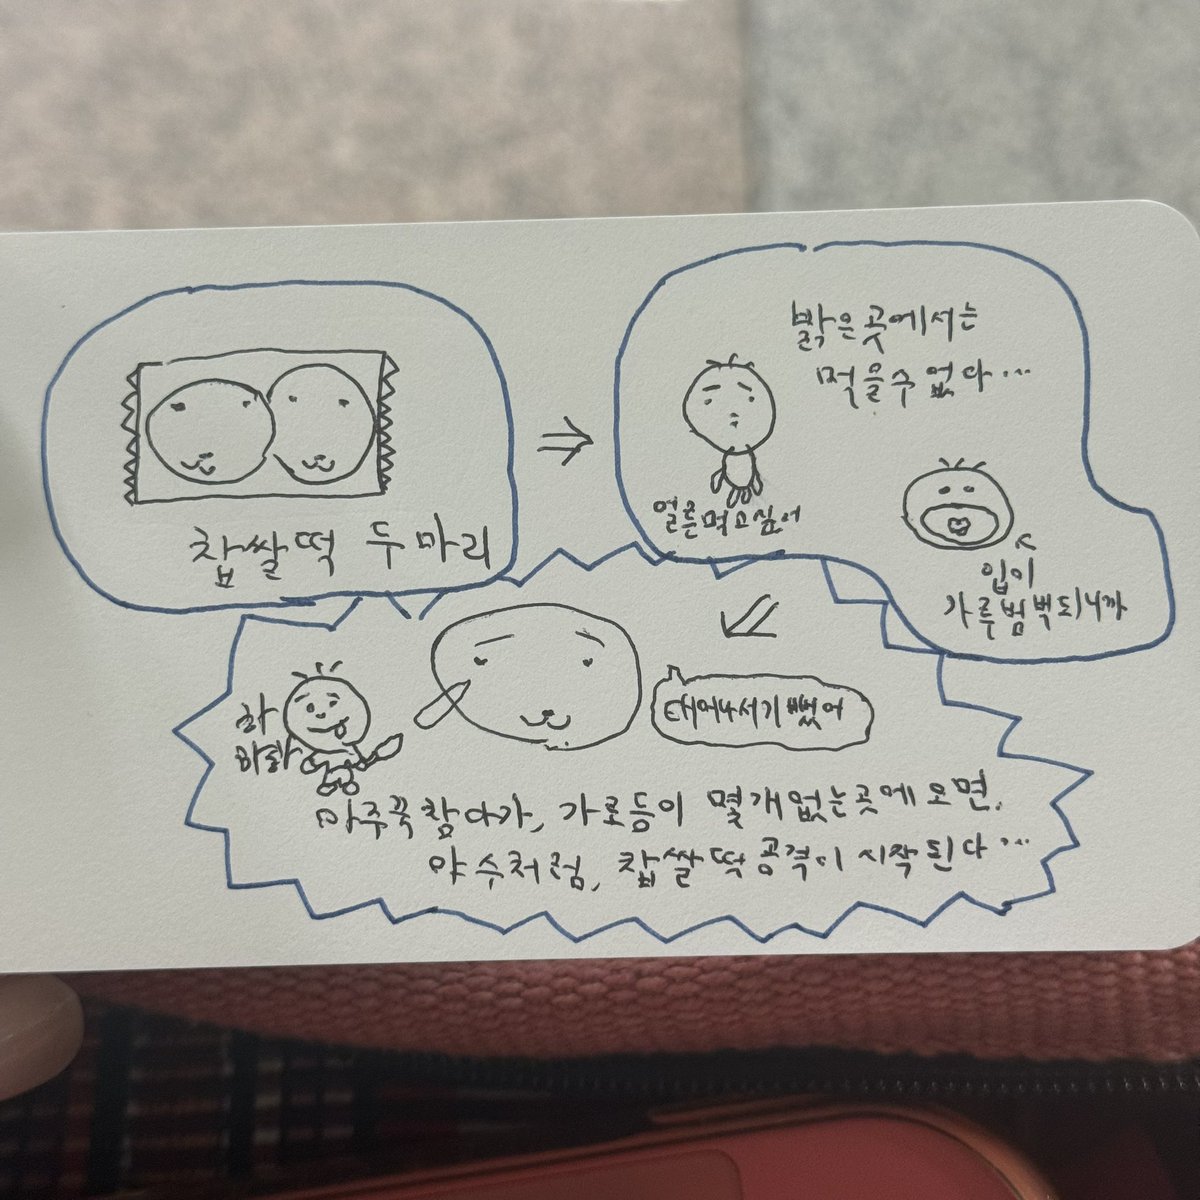 찹쌀떡 두마리
밝은 곳에서는
먹을수 없다...
얼른먹고싶어
입이
가루범벅되니까
하
마주꾹참아가, 가로등이 몇개없는곳에오면,
야수처럼, 찹쌀떡공격이 시작된다...